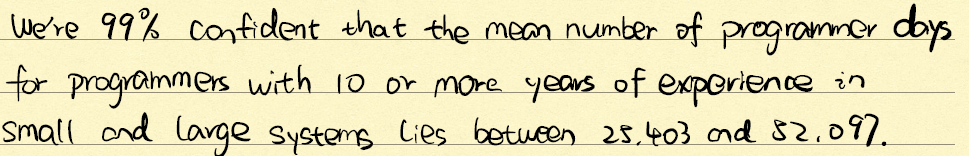 We're 99% confident that the mean number of programmer days
for programmers with 10 or more years of experience in
small and large systems lies between 25.403 and 52.097.